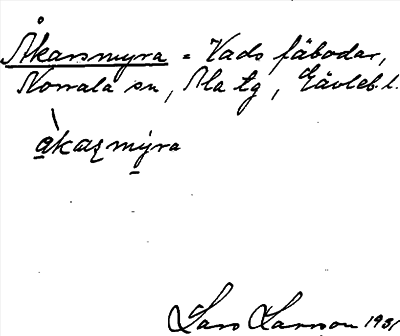 Åkarsmyra = Vads fäbodar,
Norrala sn, Ala tg, Gävleb. l.
åkaʂmýra
Lars Larsson 1931